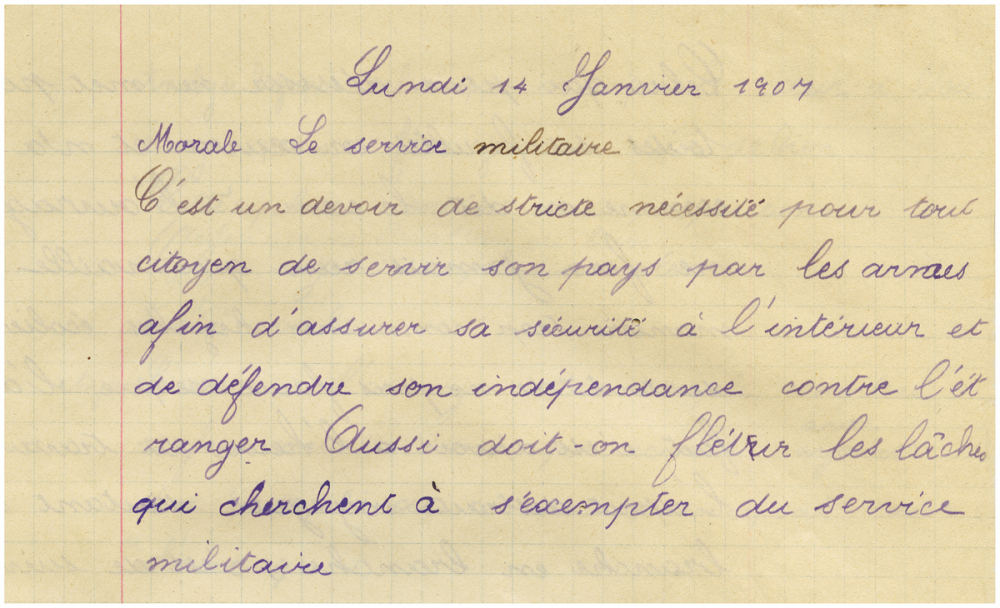 Lundi 14 Janvier 1907
Morale Le service militaire
C'est un devoir de stricte nécessité pour tout
citoyen de servir son pays par les armes
afin d'assurer sa sécurité à l'intérieur et
de défendre son indépendance contre l'ét
ranger. Aussi doit-on flétrir les lâches
qui cherchent à s'éxempter du service
militaire